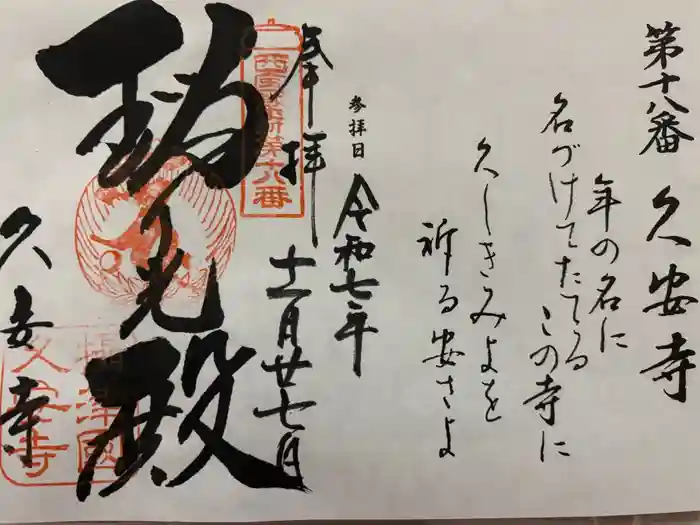 第十八番 久安寺
年の名に
名づけてたてるこの寺に
久しきみよを
祈る安さよ
参拝日
令和七年
十一月廿七日
奉拝
西国薬師第十八番
瑠璃光殿
久安寺
摂津國
久安寺